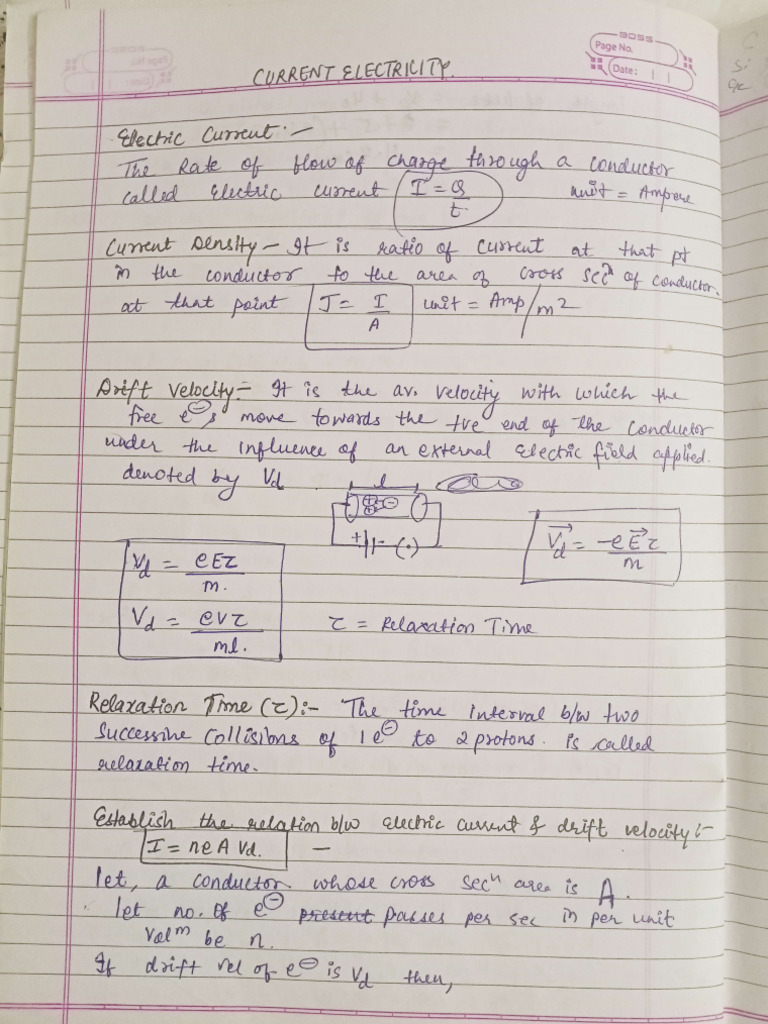 BOSS
Page No.
Date:
CURRENT ELECTRICITY.
Electric Current :-
The Rate of flow of charge through a conductor
called Electric current I = Q/t. unit = Ampere
Current Density - It is ratio of current at that pt
in the conductor to the area of cross secⁿ of conductor.
at that point J = I/A unit = Amp/m²
Drift velocity :- It is the av. velocity with which the
free e⊖s move towards the +ve end of the conductor
under the influence of an external electric field applied.
denoted by Vd
l
+ + -
+ - (·)
Vd = eEτ/m.
Vd = -eEτ/m
Vd = eVτ/ml.
τ = Relaxation Time
Relaxation Time (τ) :- The time interval b/w two
successive collisions of 1 e⊖ to 2 protons. is called
relaxation time.
Establish the relation b/w electric current & drift velocity :-
I = neA Vd. -
let, a conductor whose cross secⁿ area is A.
let no. of e⊖ present passes per sec in per unit
volᵐ be n.
If drift vel of e⊖ is Vd then,